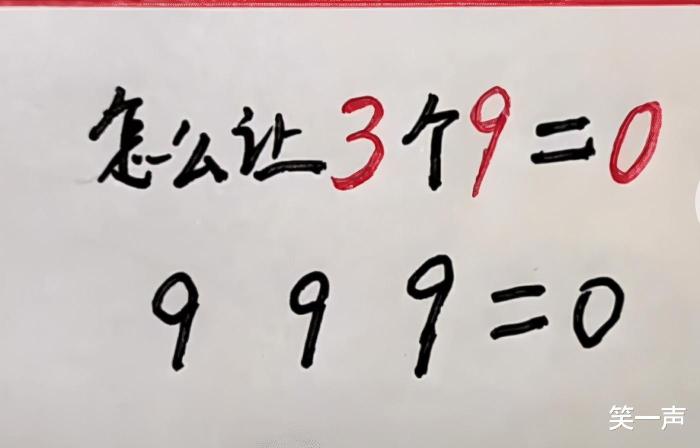 怎么让3个9=0
9 9 9=0
笑一声